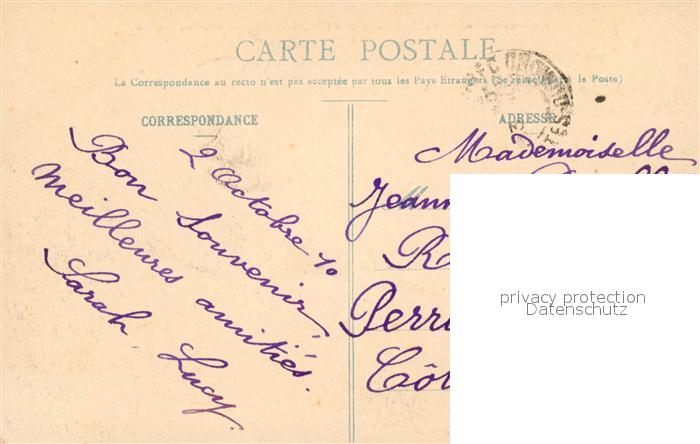 CARTE POSTALE
La Correspondance au recto n'est pas acceptée par tous les Pays Etrangers (Se renseigner à la Poste)
CORRESPONDANCE
2 Octobre 10
Bon Souvenir,
meilleures amitiés.
Sarah. Lucy.
ADRESSE
Mademoiselle
Jeann
R
Perri
Côt
privacy protection
Datenschutz